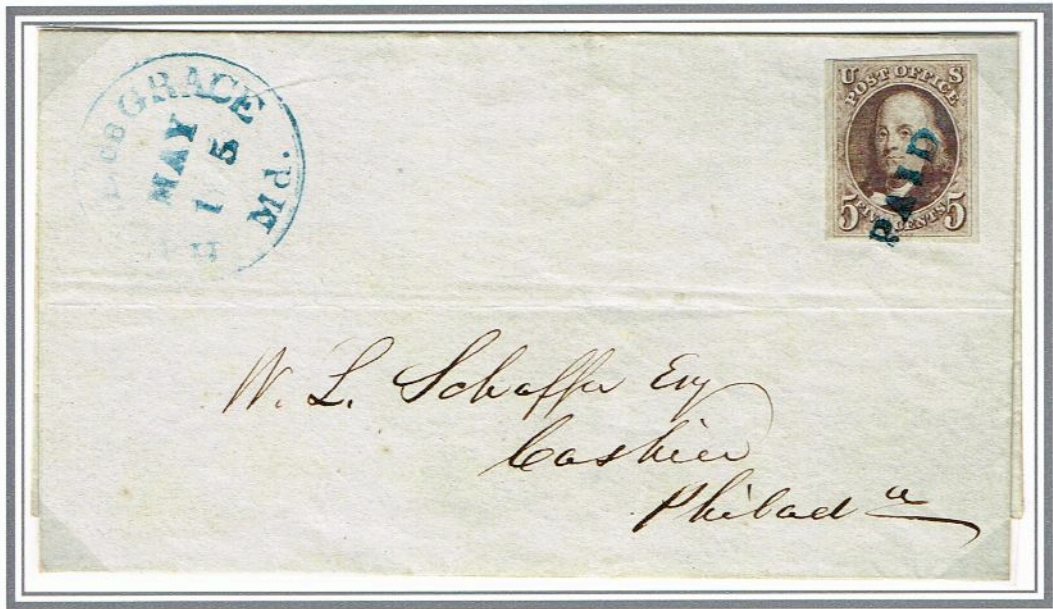 GRACE
MAY
15
P.M
U S
POST OFFICE
5 FIVE CENTS 5
PAID
W. L. Schaffer Esq
Cashier
Philada